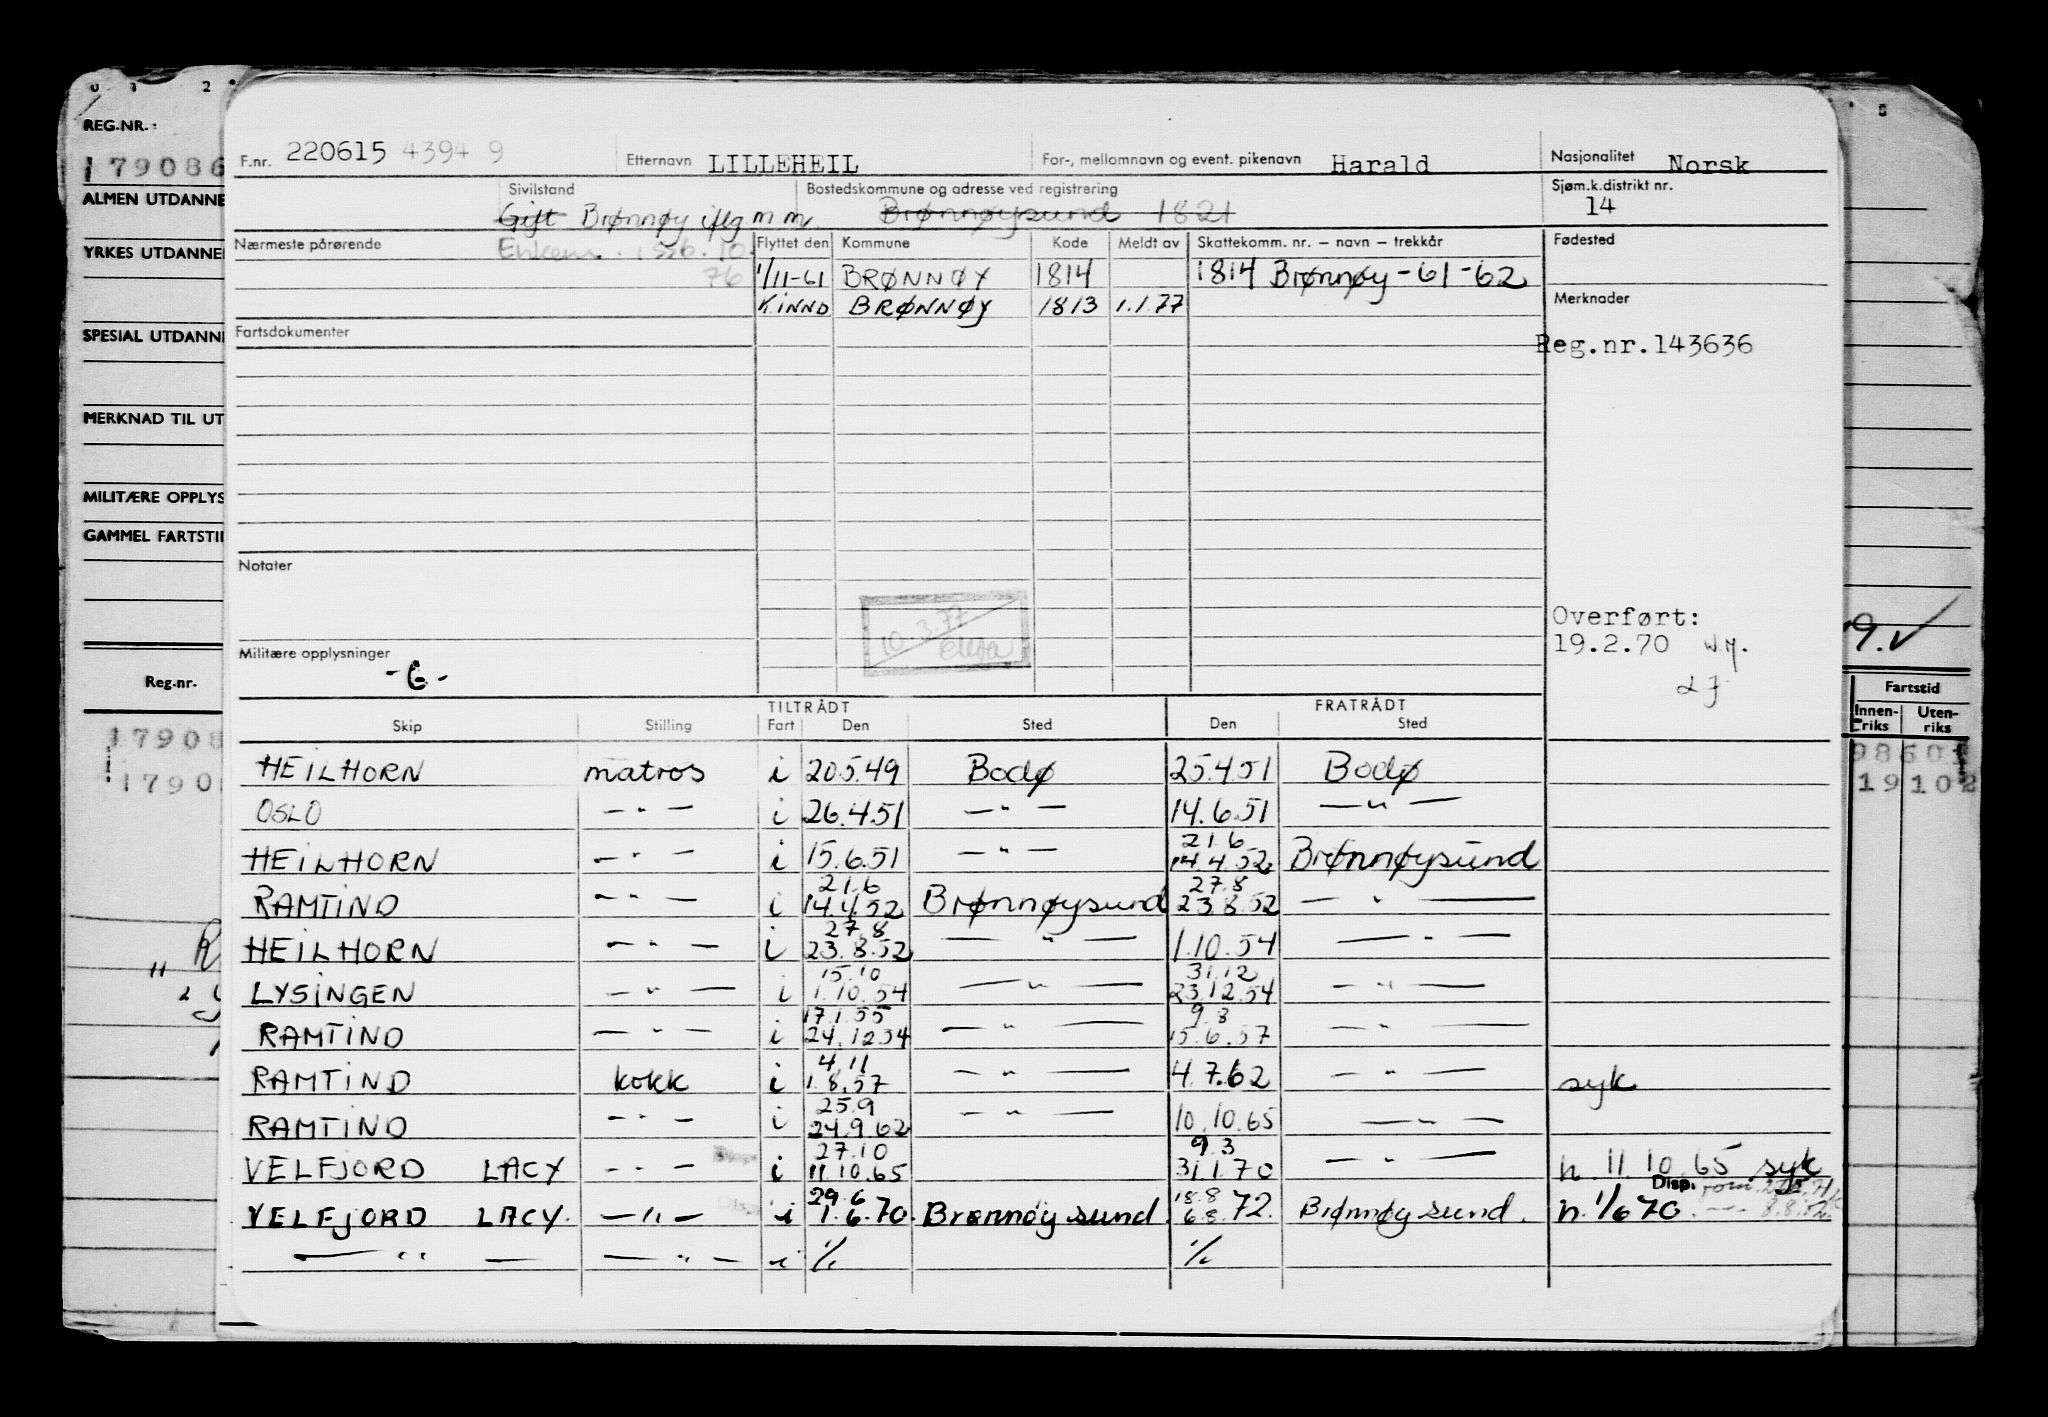 REG.NR.:
179086
ALMEN UTDANNE
YRKES UTDANNE
SPESIAL UTDANN
MERKNAD TIL UT
MILITÆRE OPPLYS
GAMMEL FARTSTI
Reg.nr.
17908
1790
F.nr. 220615 4394 9 Etternavn LILLEHEIL For-, mellomnavn og event. pikenavn Harald Nasjonalitet Norsk
Sivilstand Bostedskommune og adresse ved registrering Sjøm.k.distrikt nr.
Gift Brønnøy iflg m m. Brønnøysund 1821 14
Nærmeste pårørende Flyttet den Kommune Kode Meldt av Skattekomm. nr. – navn – trekkår Fødested
76 1/11-61 BRØNNØY 1814 1814 Brønnøy - 61 - 62
KINND BRØNNØY 1813 1.1.77 Merknader
Fartsdokumenter Reg.nr.143636
Notater
10.3.77
Overført:
19.2.70 W.M.
Militære opplysninger
-G-
TILTRÅDT FRATRÅDT
Skip Stilling Fart Den Sted Den Sted
HEILHORN matros i 20.5.49 Bodø 25.4.51 Bodø
OSLO — " — i 26.4.51 — " — 14.6.51 — " —
21.6
HEILHORN — " — i 15.6.51 — " — 14.4.52 Brønnøysund
21.6 27.8
RAMTIND — " — i 14.4.52 Brønnøysund 23.8.52 — " —
27.8
HEILHORN — " — i 23.8.52 — " — 1.10.54 — " —
15.10 31.12
LYSINGEN — " — i 1.10.54 — " — 23.12.54 — " —
17.1.55 9.8
RAMTIND — " — i 24.12.54 — " — 15.6.57 — " —
4.11
RAMTIND kokk i 1.8.57 — " — 4.7.62 — " — syk
25.9
RAMTIND — " — i 24.9.62 — " — 10.10.65 — " —
27.10 9.3
VELFJORD LACY — " — i 11.10.65 31.1.70 — " — h. 11.10.65 syk
29.6 18.8 Disp.
VELFJORD LACY. — " — i 1.6.70. Brønnøysund. 6.8.72. Brønnøysund. h. 1/6 70. 8.8.72
— " — — " — i 1/. 1/.
9.✓
Fartstid
Innen-riks Uten-riks
98 601
19 102